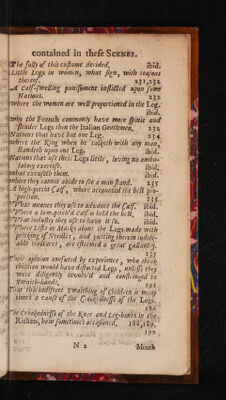 contained in theſe SCENES.
The folly of this cuſtome derided. ibid.
Little Legs in women, what ſign, with reaſons
thereof. 231,232
A calf-ſwelling puniſhment inflicted upon ſome
Nations. 232
Where the women are well proportioned in the Leg.
ibid.
Why the French commonly have more ſpiny and
ſlender Legs then the Italian Gentlemen. 232
Nations that have but one Leg. 234
Where the King when he talketh with any man,
ſtandeth upon one Leg. ibid.
Nations that uſe their Legs little, loving no ambu-
latory exerciſe. ibid.
what exceſs them. ibid.
Where they cannot abide to ſee a man ſtand. 235
A high-pitch'd Calf, where accounted the beſt pro-
portion. 235
What meanes they uſe to advance the Calf. ibid.
Where a low-pitch'd Calf is held the beſt, ibid.
What induſtry they uſe to have it ſo. ibid.
Where Liſts or Marks about the Legs made with
pricking of Needles, and putting therein indele-
able tinctures, are eſteemed a great gallantry.
235
Their opinion confuted by experience, who think
children would have diſtorted Legs, unleſs they
were diligently involv'd and conſtrained in
Swaith-bands. 191
That this diligent ſwathing of children is many
times a cauſe of the Crookedneſſe of the Legs,
190
The Crookedneſſe of the Knee and Leg-bones in the
Rickets, how ſometimes occaſioned, 188,189,
190
N 2 Mouth